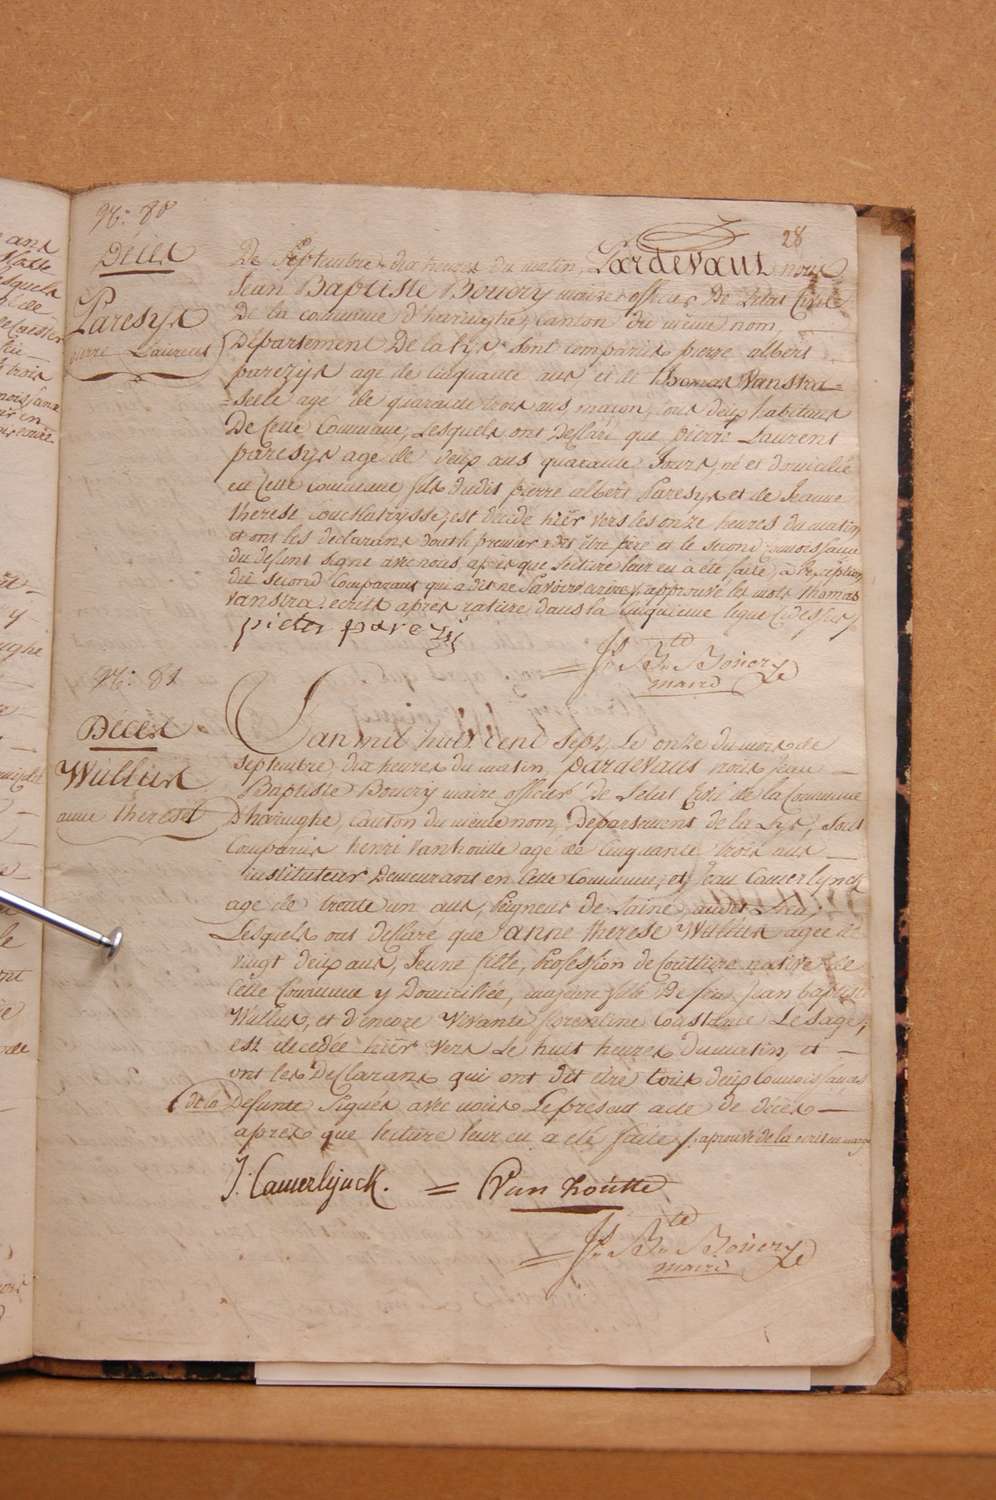 28
N.o 80
Décès
Paresys
pierre Laurent
De Septembre, dix heures du matin, Pardevant nous
Jean Baptiste Bouery maire officier De Letat Civil
De la commune d'haringhe, canton du meme nom,
Département De la Lys, sont comparus pierre albert
parezys agé de Cinquante ans et de thomas Vanstra=
=seele agé de quarante trois ans, maçon, tous deux habitans
De cette Commune, Lesquels ont Declaré que pierre Laurent
paresys agé de deux ans quarante Jours, né et domicilié
en Cette commune, fils dudit pierre albert Paresys et de Jeanne
therese Couchatrysse, est decidé hiër vers les onze heures du matin,
et ont les declarans dont le premier à dit être père et le second connoissance
du defunt signé avec nous après que lecture leur en a été faite, à l'exception
du second Comparant qui a dit ne savoir ecrire, approuvé les mots thomas
vanstra, ecrits après rature dans la cinquieme ligne cidessus
pieter parezijs
J.n B.te Bouery
maire
N.o 81
Décès
Wullus
anne therese
L'an mil huit cent sept, Le onze du mois de
Septembre, dix heures du matin, pardevant nous Jean
Baptiste Bouery maire officier de Letat Civil de la Commune
D'haringhe, Canton du meme nom, Département de la Lys, sont
Comparus henri vanhoutte agé de Cinquante trois ans
instituteur Demeurant en Cette Commune, et Jean Camerlynck
agé de trente un ans, Peigneur de Laine, audit
Lesquels ont declaré que anne therese Wullus agée de
vingt deux ans, Jeune fille, Profession de Couturiere native de
Cette Commune y Domiciliée, majeure fille De feu Jean baptiste
Wullus, et d'encore Vivante florentine Constance Lesage,
est decedée hiër vers Le huit heures du matin, et
ont les Declarans qui ont dit être tous deux Connoissances
de la Defunte Signés avec nous Le present acte de décès
apres que lecture leur en a été faite /. aprouvé de la ecrit en marge
J: Camerlijnck. = Van houtte
J.n B.te Bouery
maire